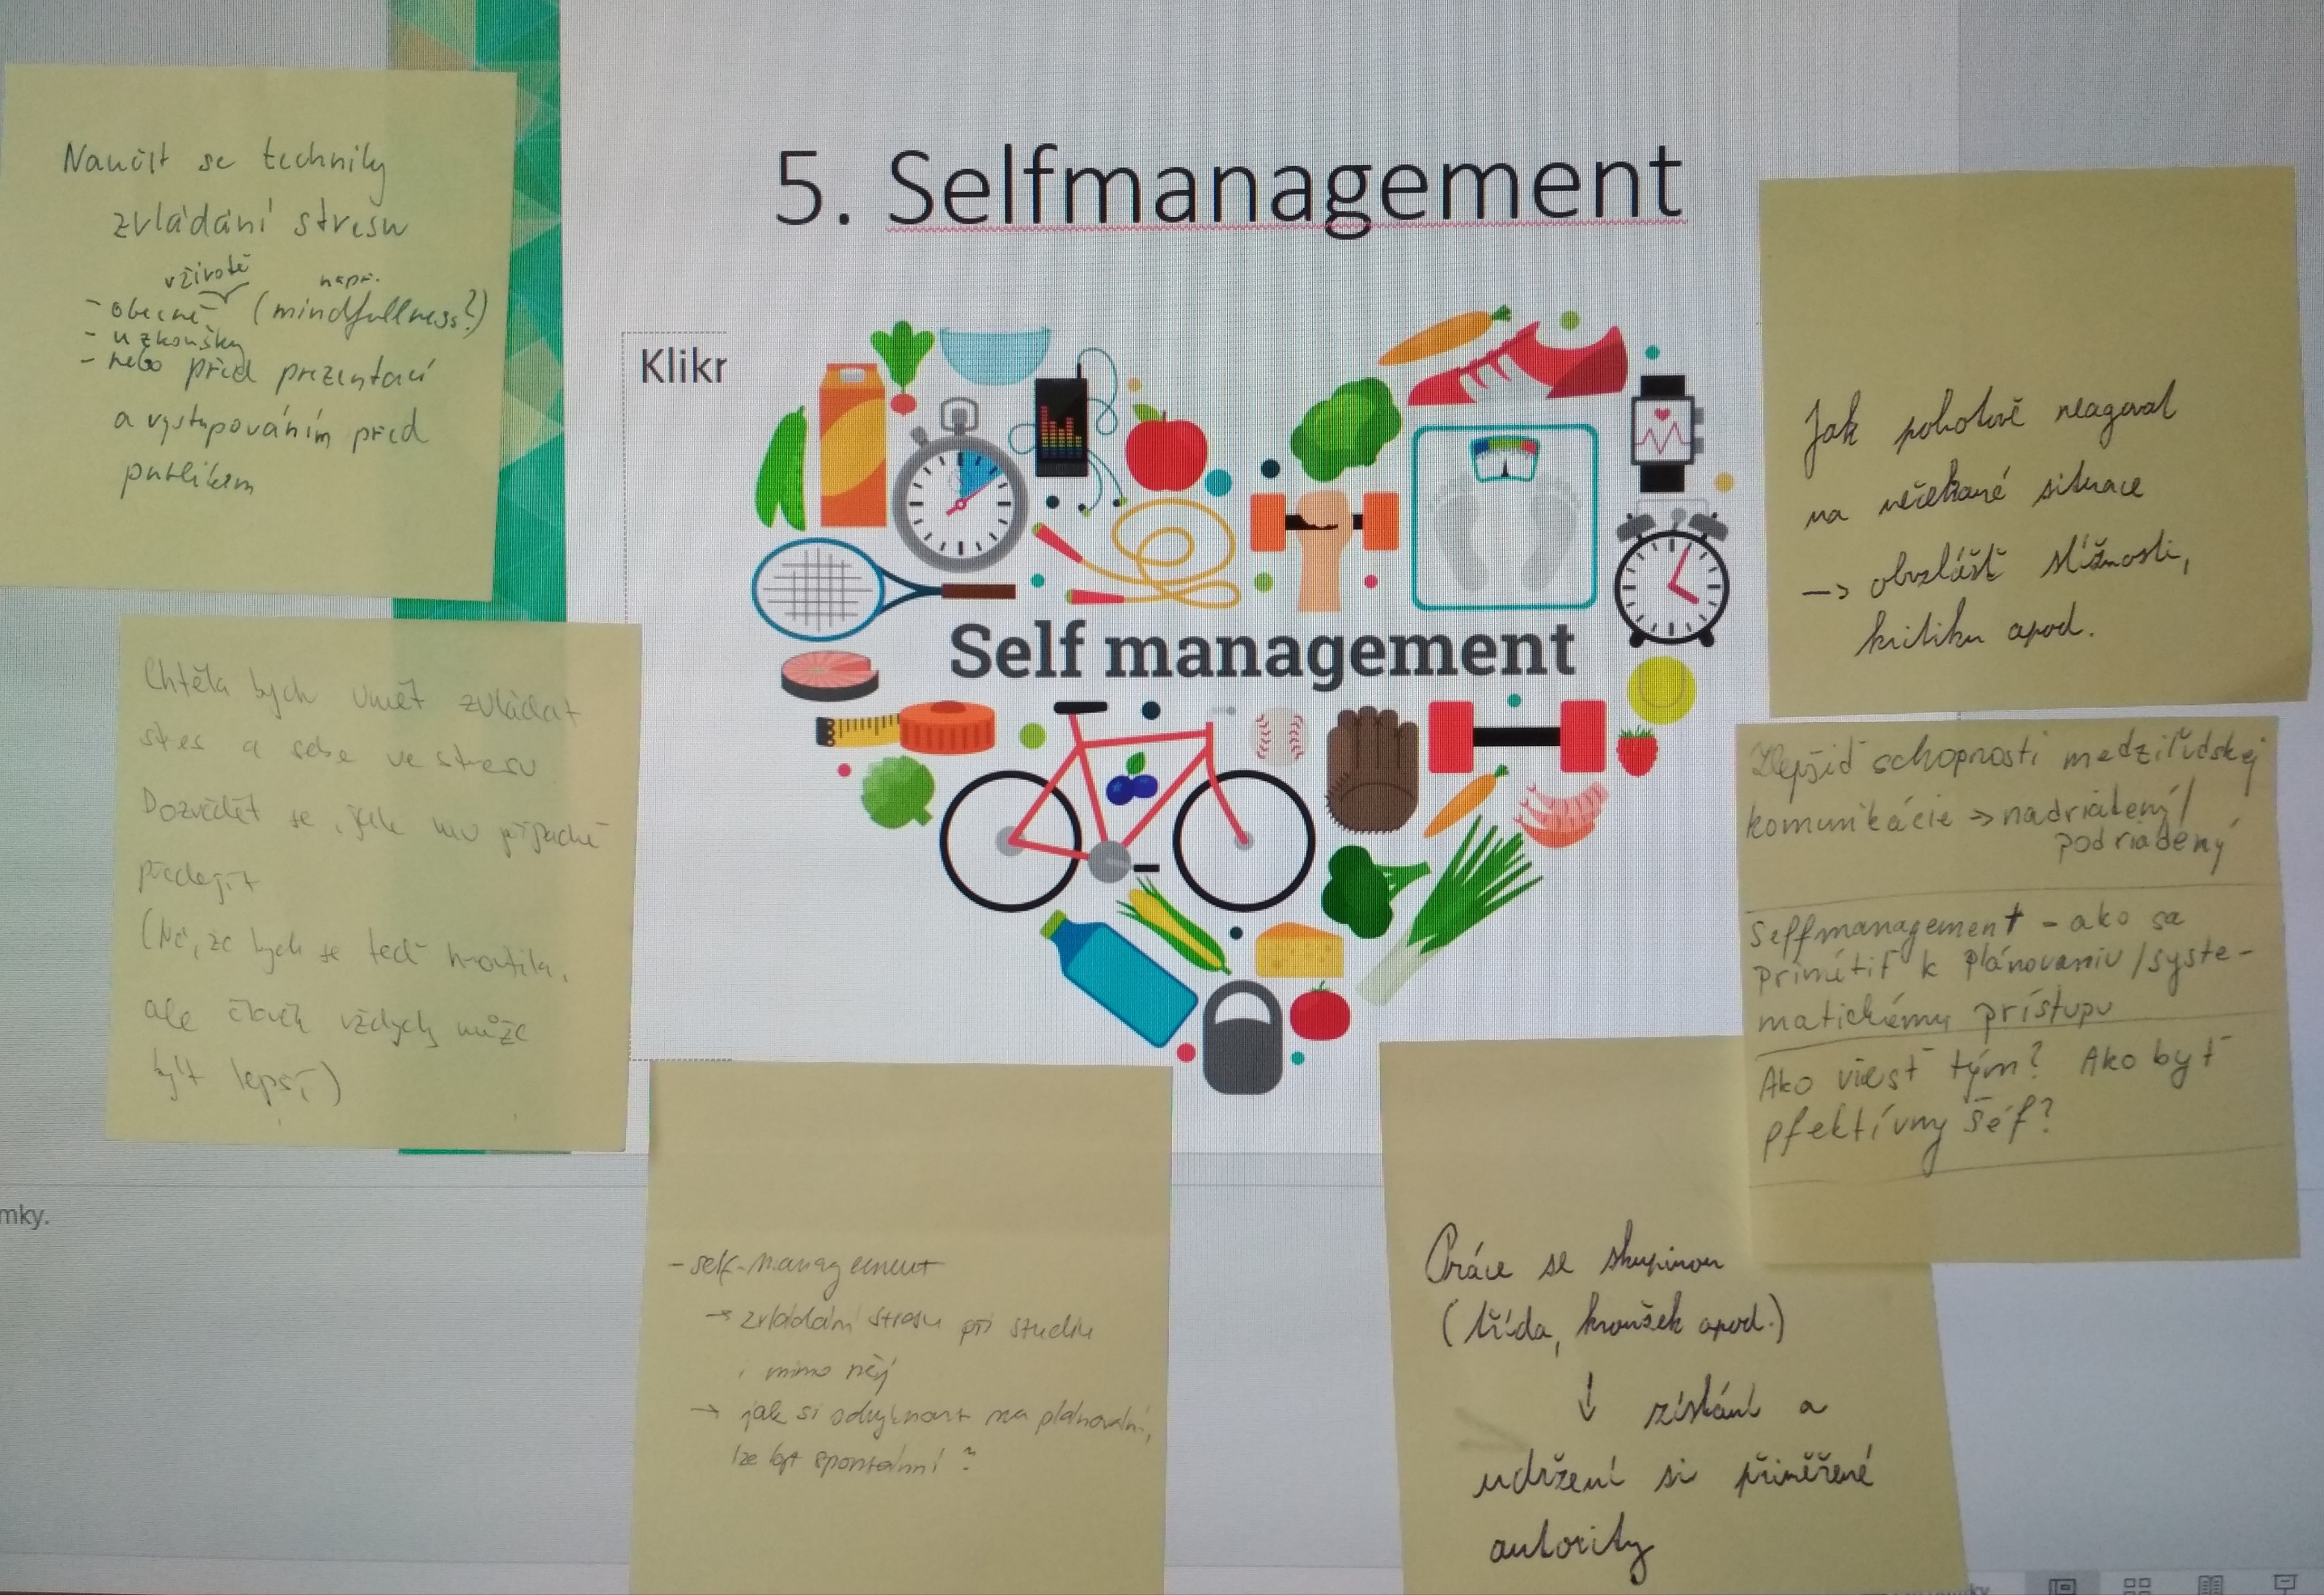 5. Selfmanagement
Naučit se techniky
zvládání stresu
v životě např.
- obecně (mindfullness?)
- u zkoušky
- nebo před prezentací
a vystupováním před
publikem
Klikr
Self management
Jak pohotově reagovat
na nečekané situace
→ obzvlášť stížnosti,
kritiku apod.
Chtěla bych umět zvládat
stres a sebe ve stresu.
Dozvědět se, jak mu případně
předejít
(Ne, že bych se teď hroutila,
ale člověk vždycky může
být lepší)
Zlepšiť schopnosti medziľudskej
komunikácie → nadriadený/
podriadený
Selfmanagement - ako sa
prinútiť k plánovaniu/syste-
matickému prístupu
Ako viesť tým? Ako byť
efektívny šéf?
mky.
- self-management
→ zvládání stresu při studiu
i mimo něj
→ jak si zvyknout na plánování,
lze být spontánní?
Práce se skupinou
(třída, kroužek apod.)
↓ získání a
udržení si přiměřené
autority